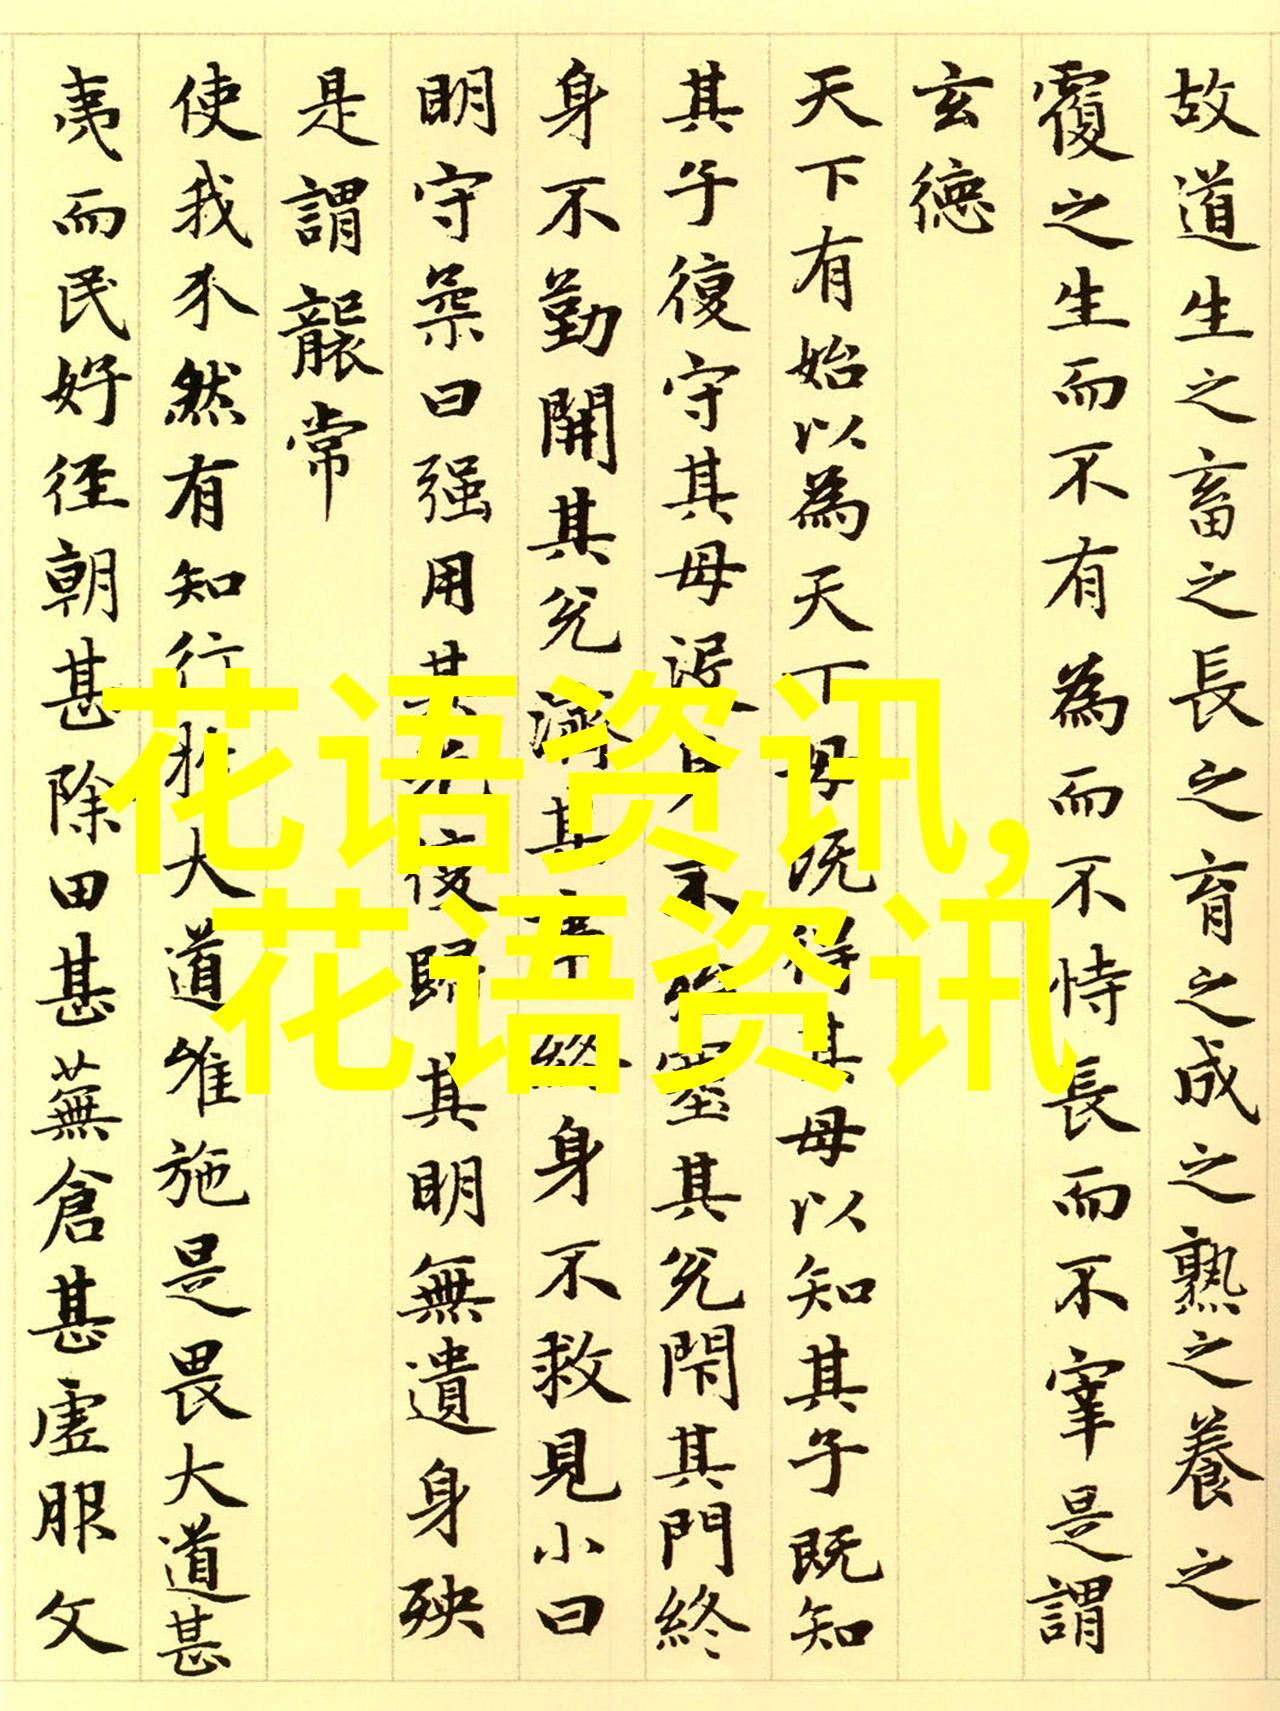 故道生之畜之長之育之成之熟之養之
覆之生而不有為而不恃長而不宰是謂
玄德
天下有始以為天下母既得其母以知其子既知
其子復守其母没身不殆塞其兌閇其門終
身不勤開其兌濟其事終身不救見小曰
明守柔曰强用其光復歸其明無遺身殃
是謂襲常
使我介然有知行於大道唯施是畏大道甚
夷而民好徑朝甚除田甚蕪倉甚虛服文
花语资讯,
花语资讯